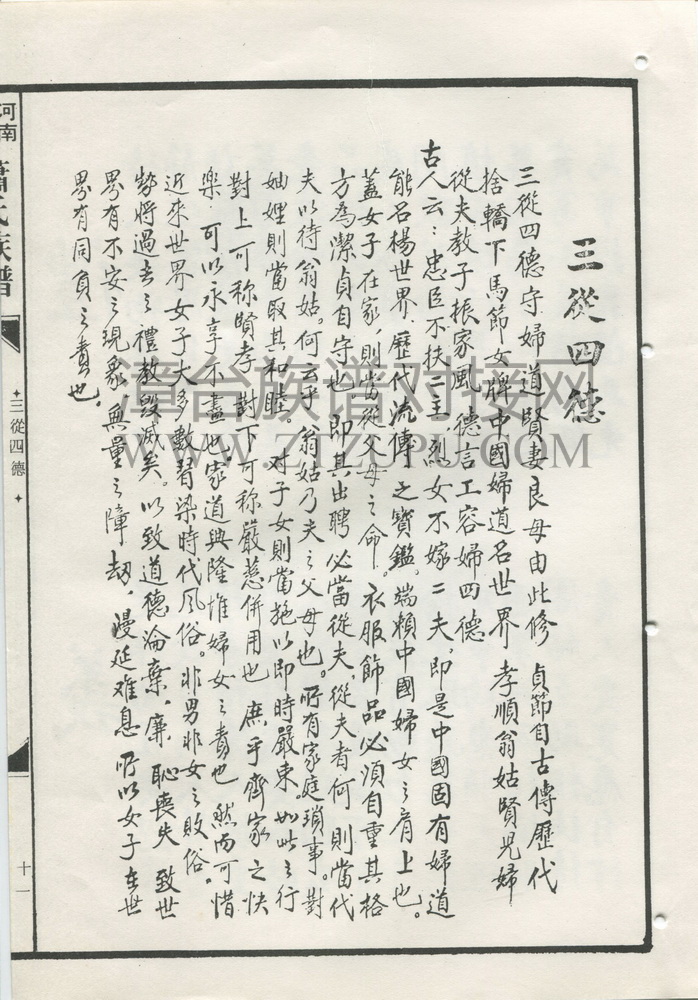 三從四德
三從四德守婦道賢妻良母由此修 貞節自古傳歷代
捨轎下馬節女牌中國婦道名世界 孝順翁姑賢児婦
從夫教子振家風 德言工容婦四德
古人云：忠臣不扶二主，烈女不嫁二夫，即是中國固有婦道
能名楊世界，歷代流傳之寶鑑。端賴中國婦女之肩上也。
蓋女子在家，則當從父母之命。衣服飾品必須自重其格
方為潔貞自守也，即其出聘必當從夫，從夫者何，則當代
夫以待翁姑。何云乎，翁姑乃夫之父母也。所有家庭瑣事。對
妯娌則當取其和睦。對子女則當施以即時嚴束。如此之行
對上可称賢孝，對下可称嚴慈併用也 庶乎齊家之快
樂，可以永享不盡也家道興隆惟婦女之責也 然而可惜。
近來世界女子大多數習染時代風俗。非男非女之敗俗。
勢將過去之禮教毀滅矣。以致道德淪棄，廉恥喪失 致世
界有不安之現象 無量之障劫，漫延难息 所以女子在世
界有同負之責也。
河南 蕭氏族譜
三從四德
十一
漳台族谱对接网
WWW.ZTZUPU.COM